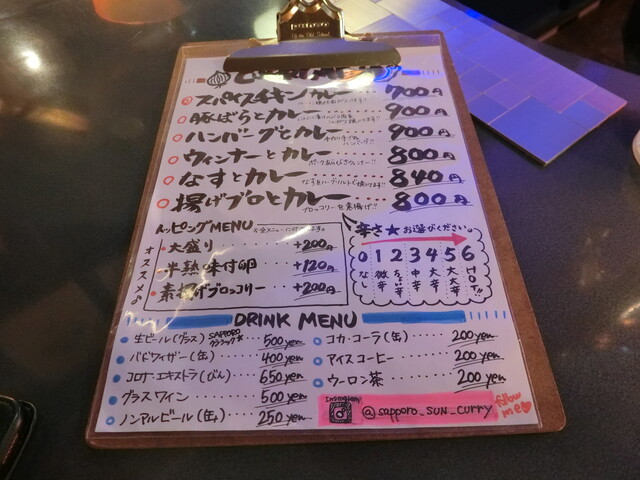 スパイスチキンカレー 700円
豚ばらとカレー 900円
ハンバーグとカレー 900円
ウィンナーとカレー 800円
なすとカレー 840円
揚げブロとカレー 800円
ブロッコリーを素揚げ!!
トッピングMENU
オススメ
大盛り +200円
半熟味付卵 +120円
素揚げブロッコリー +200円
辛さ★お選びください。
0 1 2 3 4 5 6
なし 微辛 ちょい辛 中辛 大辛 大大辛 HOT!!
DRINK MENU
生ビール(グラス) SAPPOROクラシック★ 500yen
バドワイザー(缶) 400yen
コロナエキストラ(びん) 650yen
グラスワイン 500yen
ノンアルビール(缶) 250yen
コカ・コーラ(缶) 200yen
アイスコーヒー 200yen
ウーロン茶 200yen
Instagram
@sapporo_sun_curry
follow me